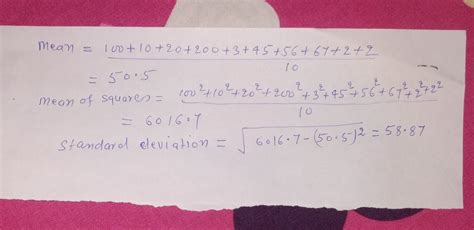 Mean = 100+10+20+200+3+45+56+67+2+2
10
= 50.5
Mean of squares = 100²+10²+20²+200²+3²+45²+56²+67²+2²+2²
10
= 6016.7
Standard deviation = √6016.7-(50.5)² = 58.87